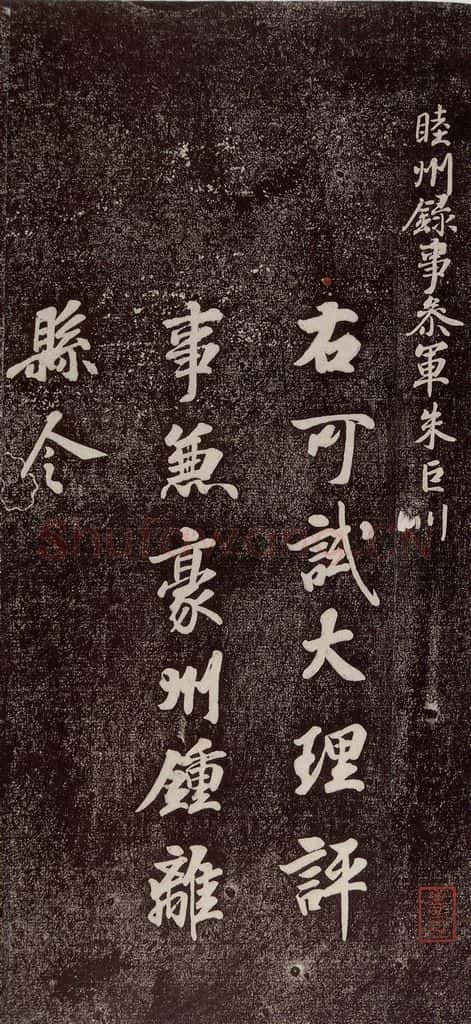 睦州録事叅軍朱巨川
右可試大理評
事兼豪州鍾離
縣令
shufawang.cn